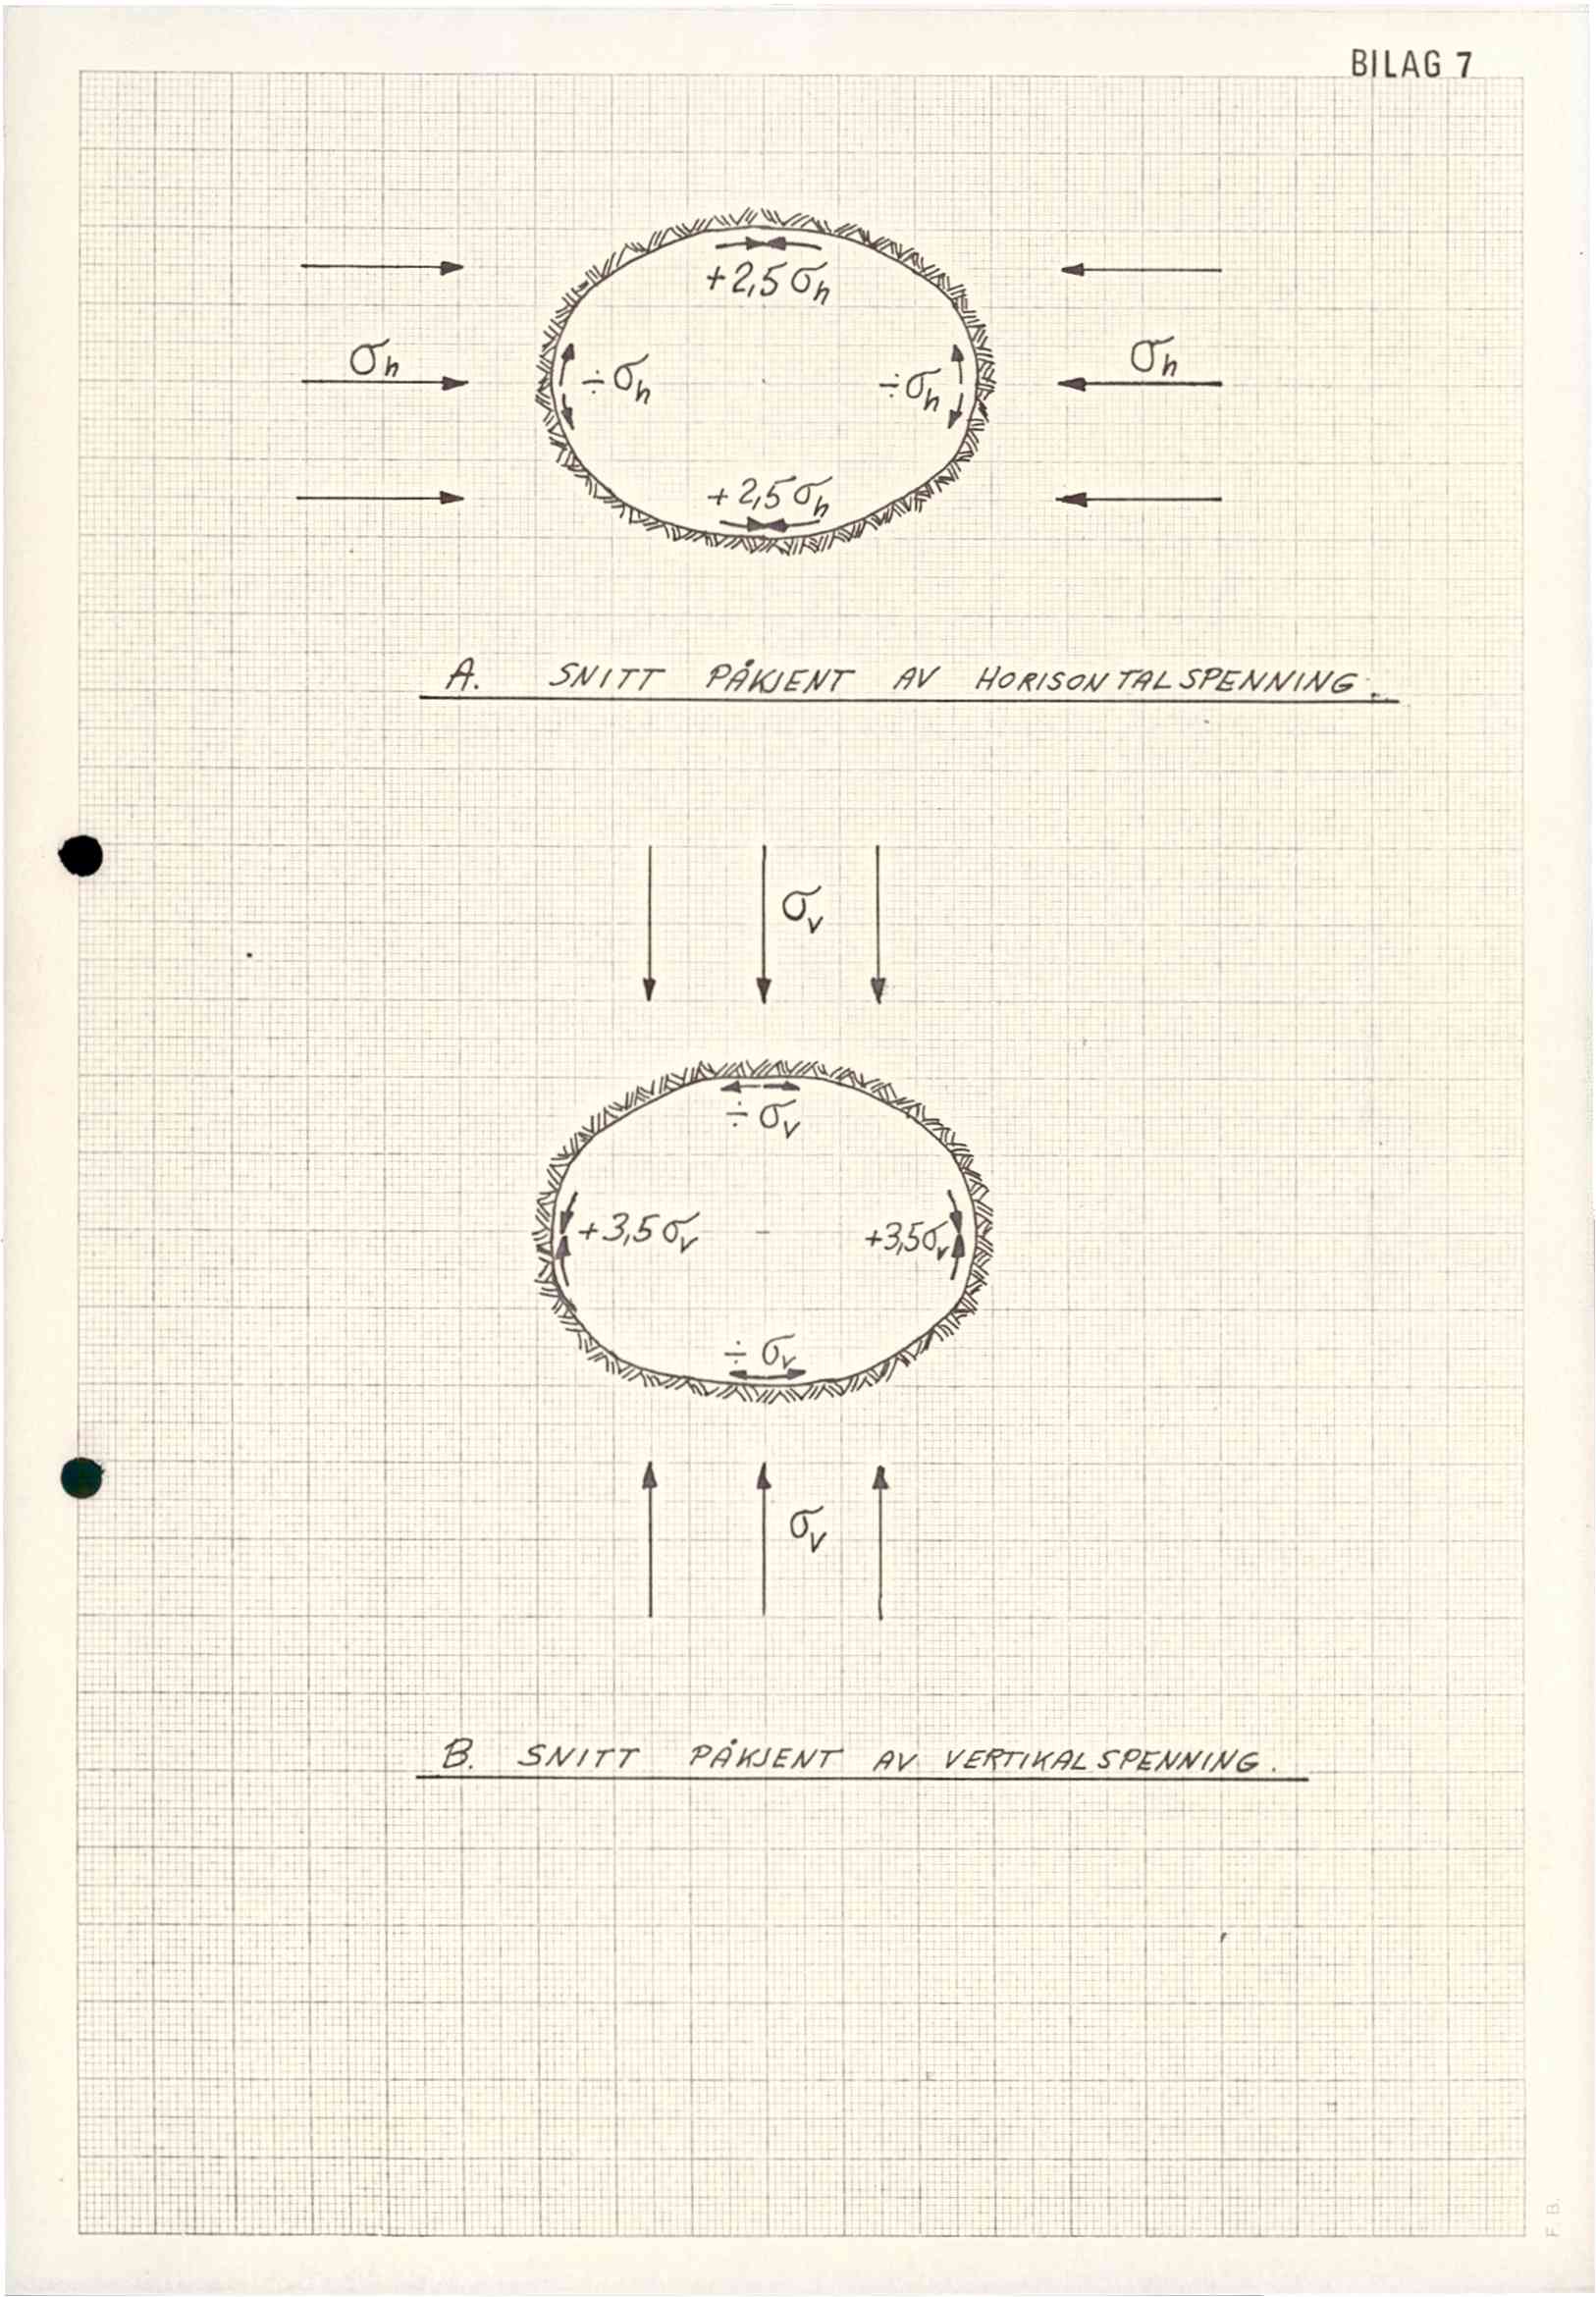 BILAG 7
+2,5 σh
σh
÷ σh
÷ σh
σh
+ 2,5 σh
A. SNITT PÅKJENT AV HORISONTALSPENNING.
σv
÷ σv
+3,5 σv
+3,5σv
÷ σv
σv
B. SNITT PÅKJENT AV VERTIKALSPENNING.
F.B.